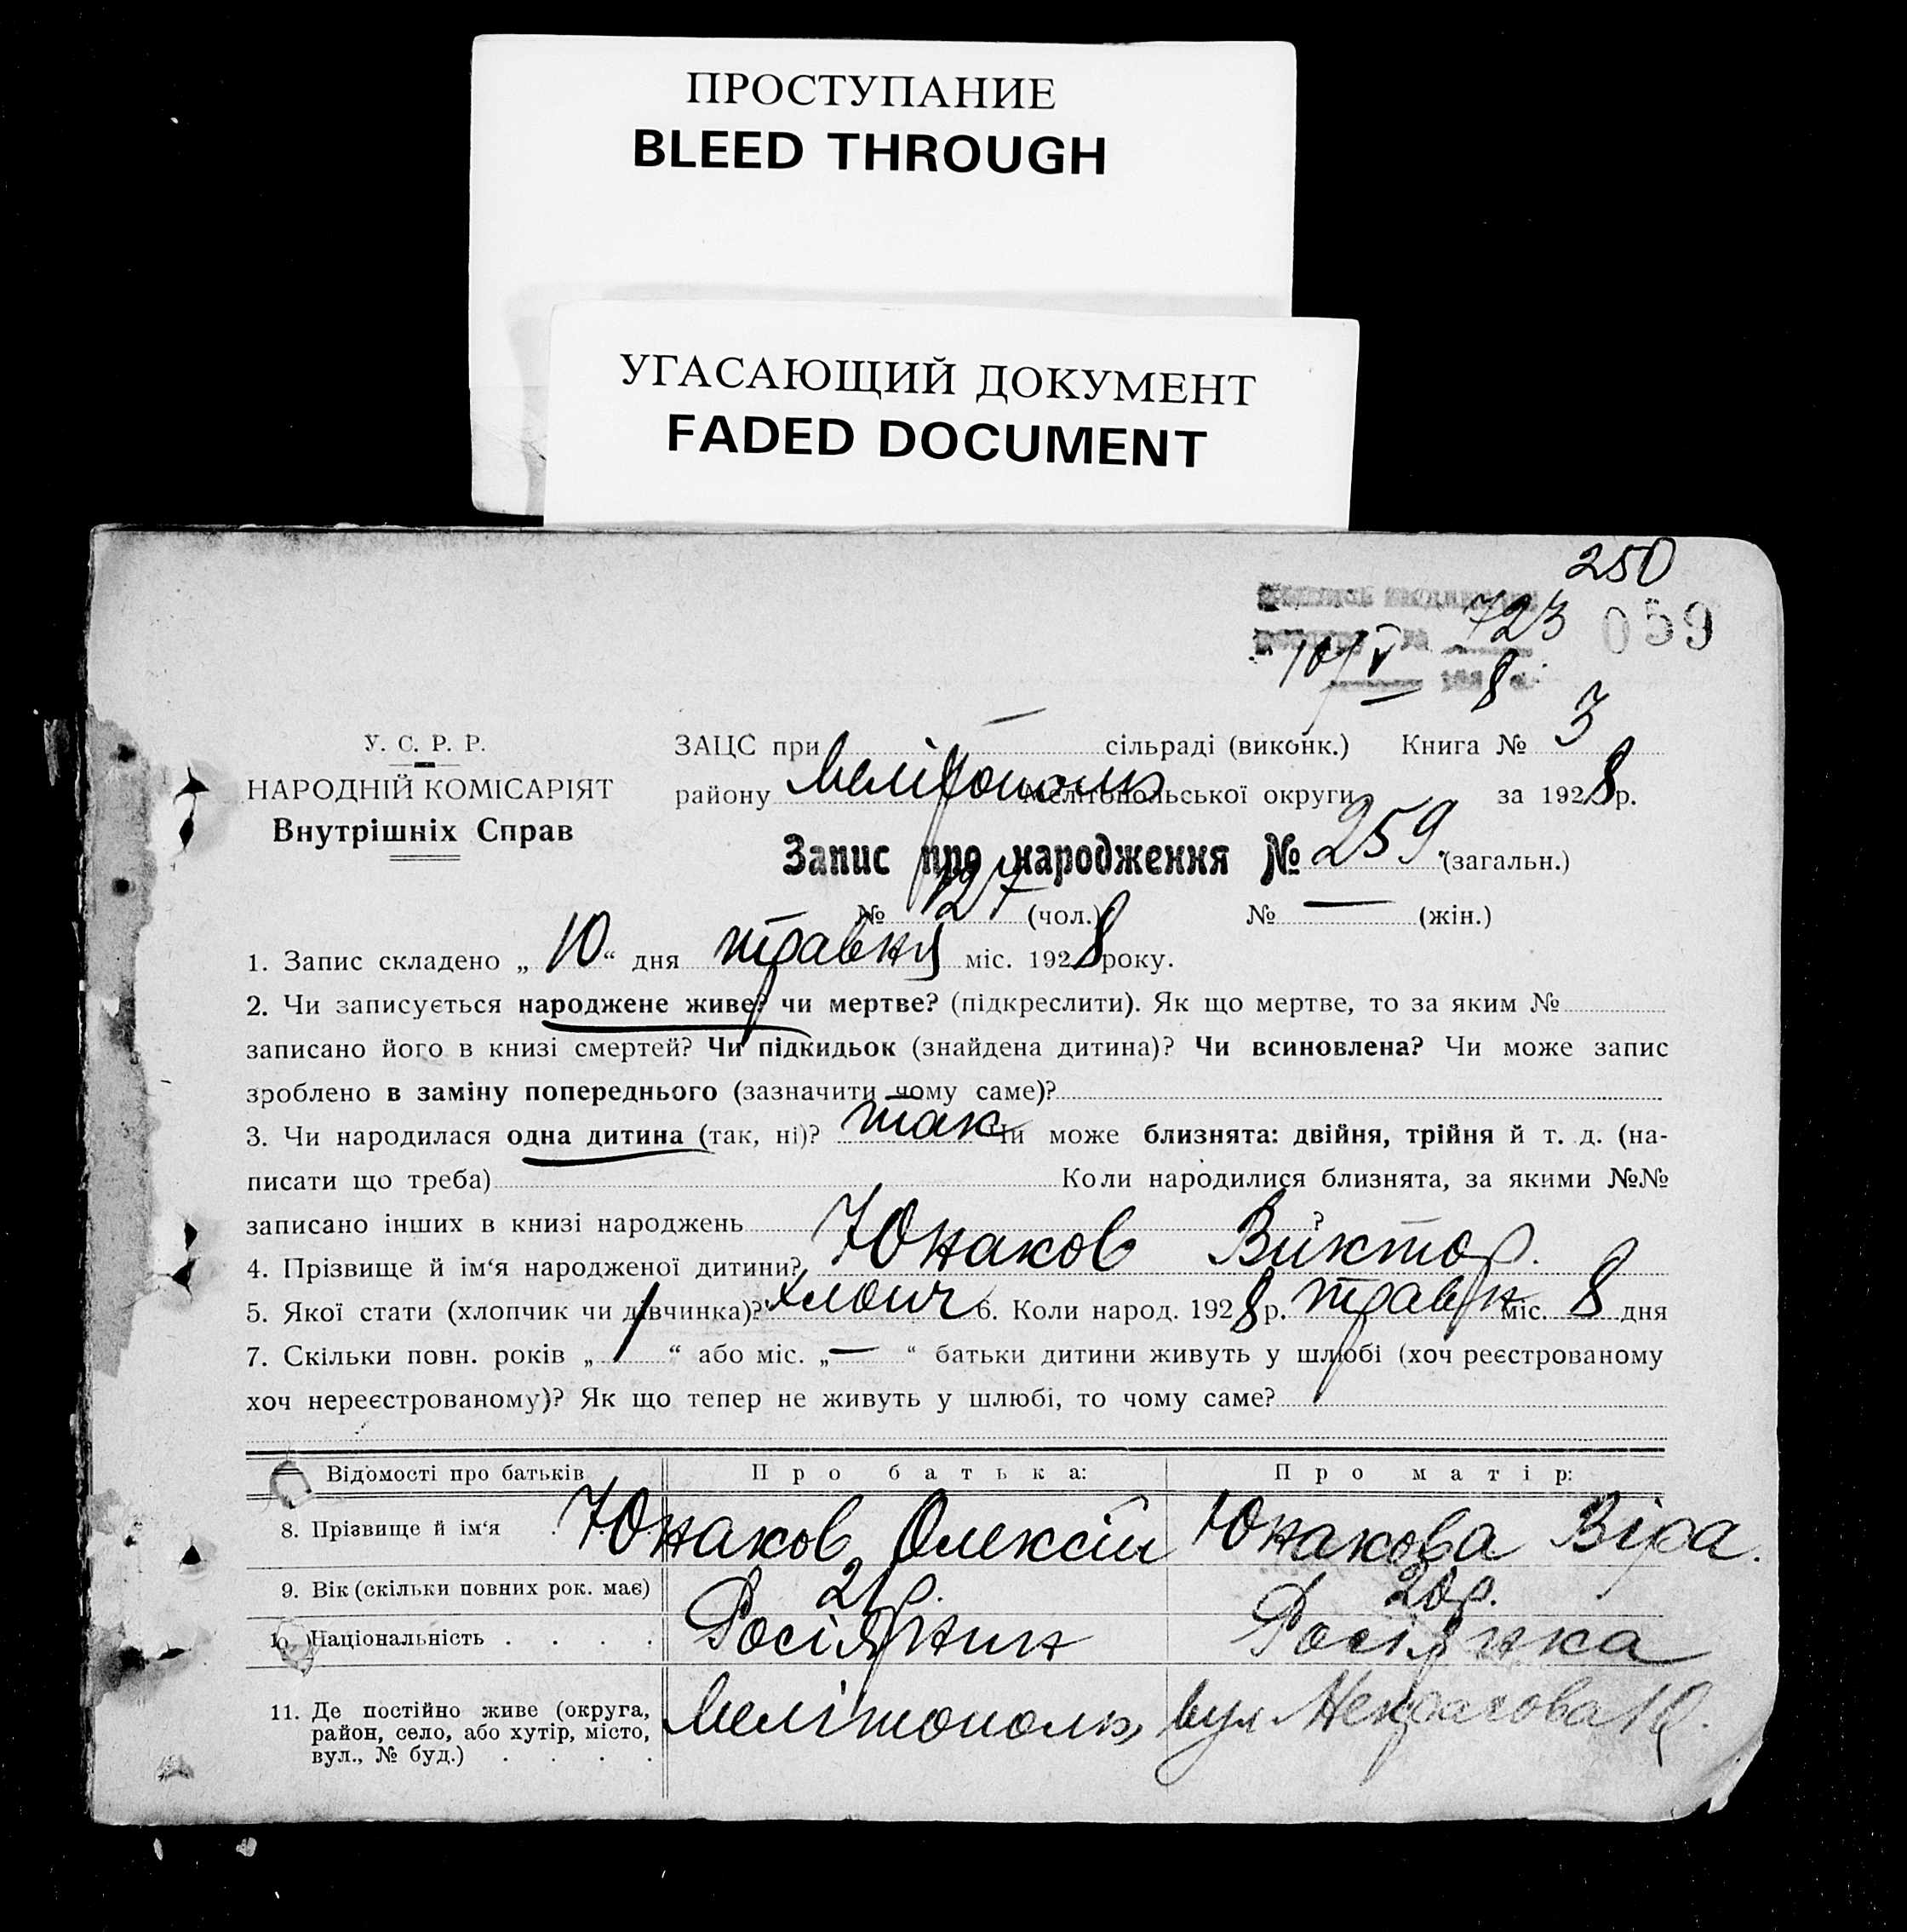 ПРОСТУПАНИЕ
BLEED THROUGH
УГАСАЮЩИЙ ДОКУМЕНТ
FADED DOCUMENT
250
723 059
10/V 8
У. С. Р. Р.
НАРОДНІЙ КОМІСАРІЯТ
Внутрішніх Справ
ЗАЦС при — сільраді (виконк.) Книга № 3
району Мелітополь Мелітопольської округи за 1928 р.
Запис про народження № 259 (загальн.)
№ 127 (чол.) № — (жін.)
1. Запис складено „10“ дня травня міс. 1928 року.
2. Чи записується народжене живе? чи мертве? (підкреслити). Як що мертве, то за яким №
записано його в книзі смертей? Чи підкидьок (знайдена дитина)? Чи всиновлена? Чи може запис
зроблено в заміну попереднього (зазначити чому саме)?
3. Чи народилася одна дитина (так, ні)? так Чи може близнята: двійня, трійня й т. д. (на-
писати що треба) Коли народилися близнята, за якими №№
записано інших в книзі народжень ?
4. Прізвище й ім‘я народженої дитини? Юнаков Віктор.
5. Якої стати (хлопчик чи дівчинка)? хлопч 6. Коли народ. 1928 р. травн міс. 8 дня
7. Скільки повн. років „1“ або міс. „—“ батьки дитини живуть у шлюбі (хоч реєстрованому
хоч нереєстрованому)? Як що тепер не живуть у шлюбі, то чому саме?
Відомості про батьків Про батька: Про матір:
8. Прізвище й ім‘я Юнаков Олексій Юнакова Віра.
9. Вік (скільки повних рок. має) 21 р. 20 р.
10. Національність . . . . Росіянин Росіянка
11. Де постійно живе (округа,
район, село, або хутір, місто,
вул., № буд.) . . . . Мелітополь, вул Некрасова